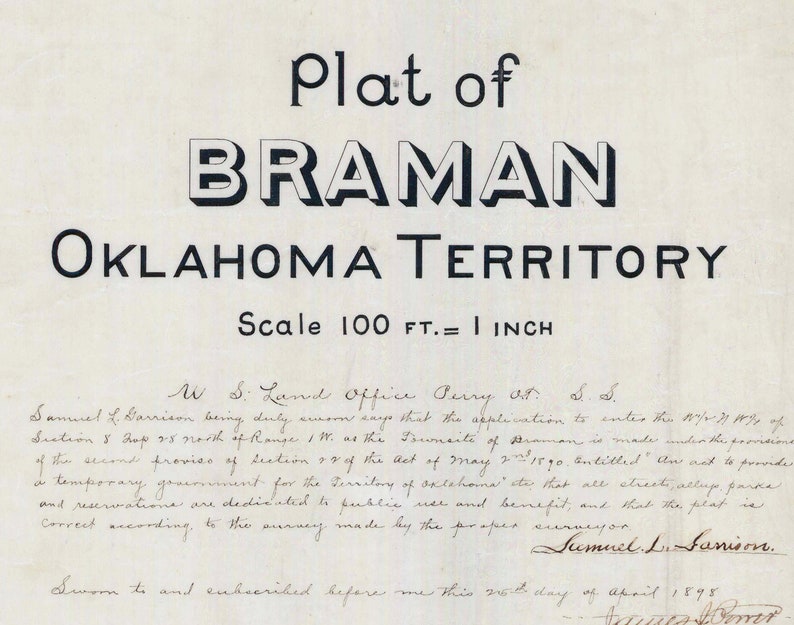 Plat of
BRAMAN
OKLAHOMA TERRITORY
Scale 100 FT. = 1 INCH
U S. Land Office Perry O.T. S. S.
Samuel L. Garrison being duly sworn says that the application to enter the W/2 N W/4 of
Section 8 Twp 28 North of Range 1 W. as the Townsite of Braman is made under the provisions
of the second proviso of Section 22 of the Act of May 2nd 1890. Entitled "An act to provide
a temporary government for the Territory of Oklahoma" etc, that all streets, alleys, parks
and reservations are dedicated to public use and benefit, and that the plat is
correct according to the survey made by the proper surveyor
Samuel. L. Garrison.
Sworn to and subscribed before me this 26th day of April 1898